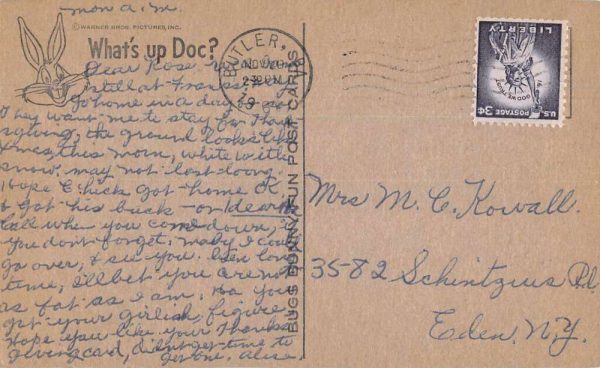 mon a.m.
© WARNER BROS. PICTURES, INC.
What's up Doc?
Dear Rose, we are
still at
go home in a day or so
They want me to stay for Thanks
giving, the ground looks like
Xmas, this morn, white with
snow, may not last long.
Hope Chick got home OK
& got his buck - or dear.
Call when you come down,
you dont forget, mayby I could
go over, & see you. been long
time, I'll bet you are not
as fat as I am. Ha you
got your girlish figure.
Hope you like your Thanks
giving card, didn't get time to
get one. Alice.
BUTLER,
NOV 26
PM
BUGS BUNNY FUN POST CARDS
U.S. POSTAGE 3¢
IN GOD WE TRUST
LIBERTY
Mrs M. C. Kowall.
35-82 Schintzius Rd
Eden, N.Y.